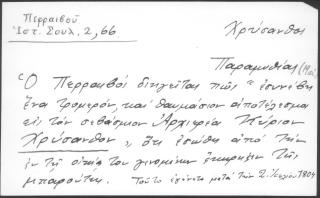 Περραιβοῦ
Ἱστ. Σουλ. 2, 66
Χρύσανθος
Παραμυθίας
Ὁ Περραιβός διηγεῖται πῶς "ἐσυνέβη
ἕνα τρομερόν, καί θαυμάσιον ἀποτέλεσμα
εἰς τόν σεβάσμιον Ἀρχιερέα Κύριον
Χρύσανθον", ὅτι ἐσώθη ἀπό τήν
ἐν τῇ οἰκίᾳ του γενομένην ἔκρηξιν τῆς
μπαρούτης. Τοῦτο ἐγένετο μετά τήν 2. 1804